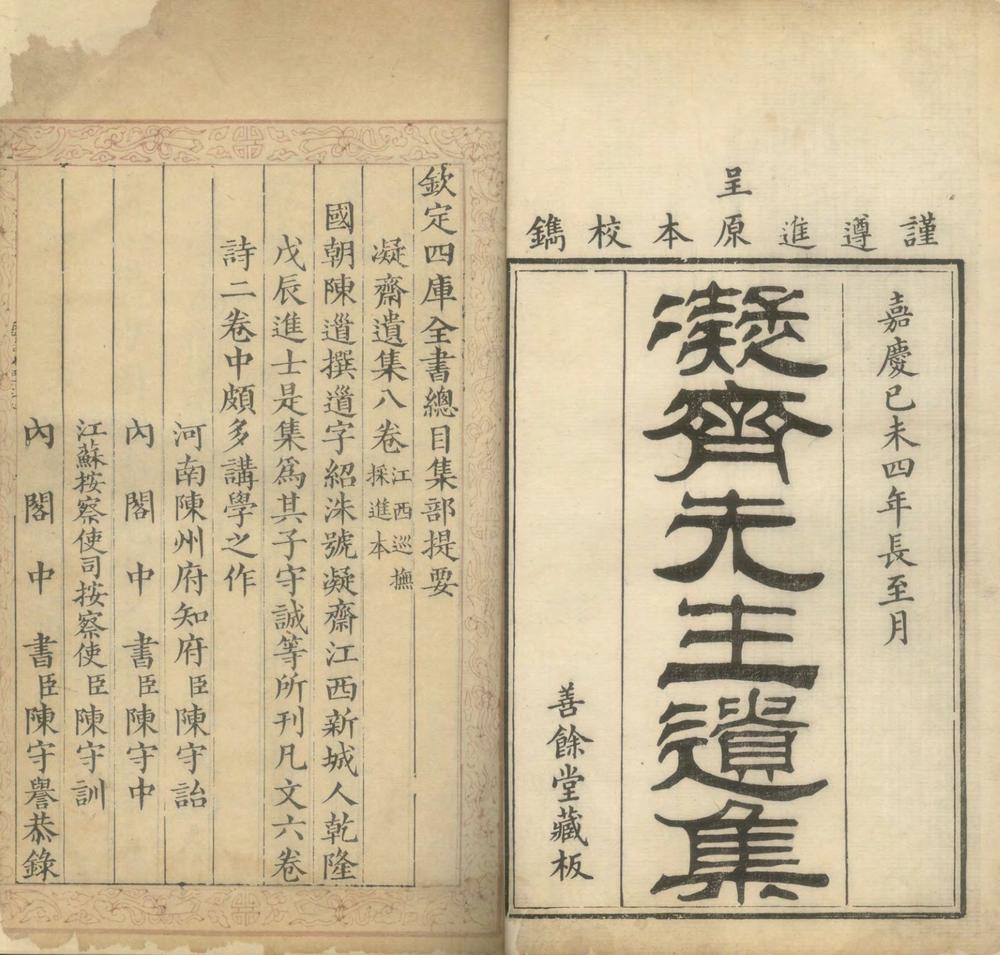 謹遵進呈原本校鐫
嘉慶己未四年長至月
凝齊先生遺集
善餘堂藏板
欽定四庫全書總目集部提要
凝齋遺集八卷江西巡撫採進本
國朝陳道撰道字紹洙號凝齋江西新城人乾隆
戊辰進士是集爲其子守誠等所刊凡文六卷
詩二卷中頗多講學之作
河南陳州府知府臣陳守詒
內閣中書臣陳守中
江蘇按察使司按察使臣陳守訓
內閣中書臣陳守譽恭錄